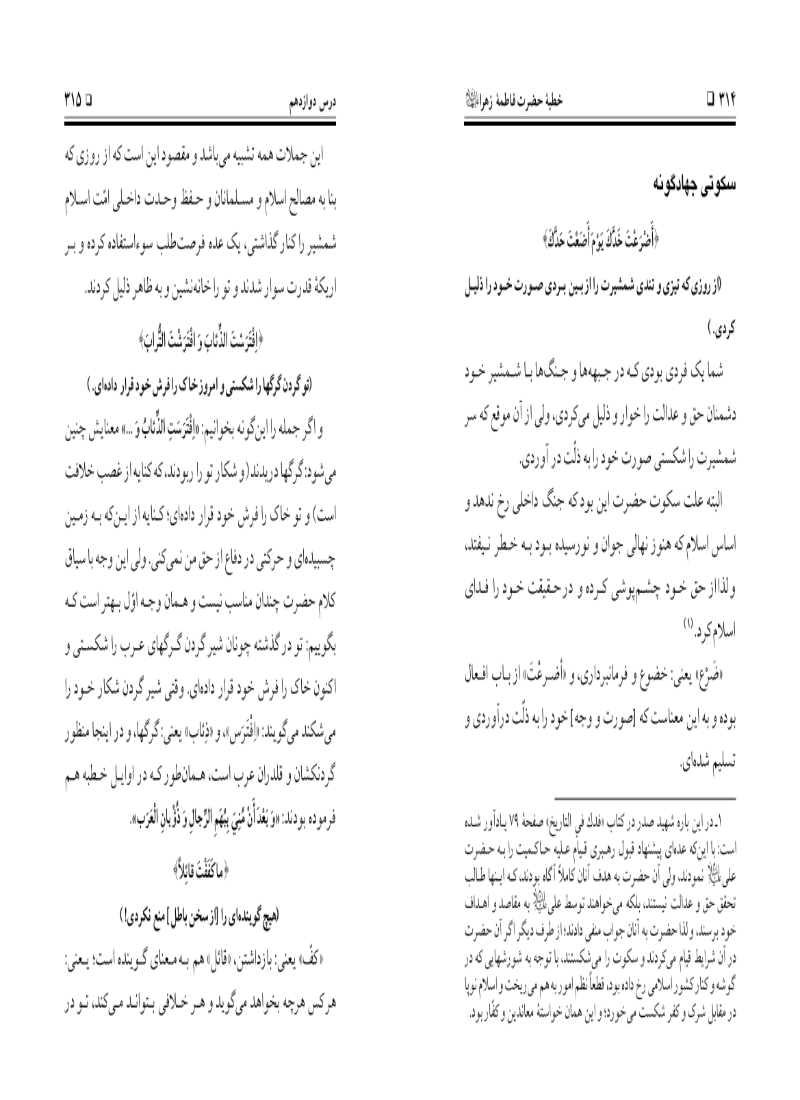 ۳۱۴ □ خطبهٔ حضرت فاطمهٔ زهرا
سکوتی جهادگونه
﴿أَضْرَعْتَ خَدَّكَ يَوْمَ أَضَعْتَ حَدَّكَ﴾
(از روزی که تیزی و تندی شمشیرت را از بین بردی صورت خود را ذلیل
کردی.)
شما یک فردی بودی که در جبهه‌ها و جنگ‌ها با شمشیر خود
دشمنان حق و عدالت را خوار و ذلیل می‌کردی، ولی از آن موقع که سر
شمشیرت را شکستی صورت خود را به ذلّت در آوردی.
البته علت سکوت حضرت این بود که جنگ داخلی رخ ندهد و
اساس اسلام که هنوز نهالی جوان و نورسیده بود به خطر نیفتد،
ولذا از حق خود چشم‌پوشی کرده و در حقیقت خود را فدای
اسلام کرد.(۱)
«ضَرْع» یعنی: خضوع و فرمانبرداری، و «أضرعْتَ» از باب افعال
بوده و به این معناست که [صورت و وجه] خود را به ذلّت درآوردی و
تسلیم شده‌ای.
۱ـ در این باره شهید صدر در کتاب «فدك في التاريخ» صفحهٔ ۷۹ یادآور شده
است: با این‌که عده‌ای پیشنهاد قبول رهبری قیام علیه حاکمیت را به حضرت
علی نمودند، ولی آن حضرت به هدف آنان کاملاً آگاه بودند، که اینها طالب
تحقق حق و عدالت نیستند، بلکه می‌خواهند توسط علی به مقاصد و اهداف
خود برسند، ولذا حضرت به آنان جواب منفی دادند؛ از طرف دیگر اگر آن حضرت
در آن شرایط قیام می‌کردند و سکوت را می‌شکستند، با توجه به شورشهایی که در
گوشه و کنار کشور اسلامی رخ داده بود، قطعاً نظم امور به هم می‌ریخت و اسلام نوپا
در مقابل شرک و کفر شکست می‌خورد؛ و این همان خواستهٔ معاندین و کفّار بود.
درس دوازدهم □ ۳۱۵
این جملات همه تشبیه می‌باشد و مقصود این است که از روزی که
بنا به مصالح اسلام و مسلمانان و حفظ وحدت داخلی امّت اسلام
شمشیر را کنار گذاشتی، یک عده فرصت‌طلب سوءاستفاده کرده و بر
اریکهٔ قدرت سوار شدند و تو را خانه‌نشین و به ظاهر ذلیل کردند.
﴿اِفْتَرَسْتَ الذِّئابَ وَ افْتَرَشْتَ التُّرابَ﴾
(تو گردن گرگها را شکستی و امروز خاک را فرش خود قرار داده‌ای.)
و اگر جمله را این‌گونه بخوانیم: «اِفْتَرَسَتِ الذِّئابُ وَ ...» معنایش چنین
می‌شود: گرگها دریدند (و شکار تو را ربودند، که کنایه از غصب خلافت
است) و تو خاک را فرش خود قرار داده‌ای؛ کنایه از این‌که به زمین
چسبیده‌ای و حرکتی در دفاع از حق من نمی‌کنی. ولی این وجه با سیاق
کلام حضرت چندان مناسب نیست و همان وجه اوّل بهتر است که
بگوییم: تو در گذشته چونان شیر گردن گرگهای عرب را شکستی و
اکنون خاک را فرش خود قرار داده‌ای. وقتی شیر گردن شکار خود را
می‌شکند می‌گویند: «اِفْتَرَس»، و «ذِئاب» یعنی: گرگها، و در اینجا منظور
گردنکشان و قلدران عرب است، همان‌طور که در اوایل خطبه هم
فرموده بودند: «وَ بَعْدَ أَنْ مُنِيَ بِبُهَمِ الرِّجالِ وَ ذُؤْبانِ الْعَرَبِ».
﴿ما كَفَفْتَ قائِلاً﴾
(هیچ گوینده‌ای را [از سخن باطل] منع نکردی!)
«کفّ» یعنی: بازداشتن، «قائل» هم به معنای گوینده است؛ یعنی:
هر کس هرچه بخواهد می‌گوید و هر خلافی بتواند می‌کند، تو در